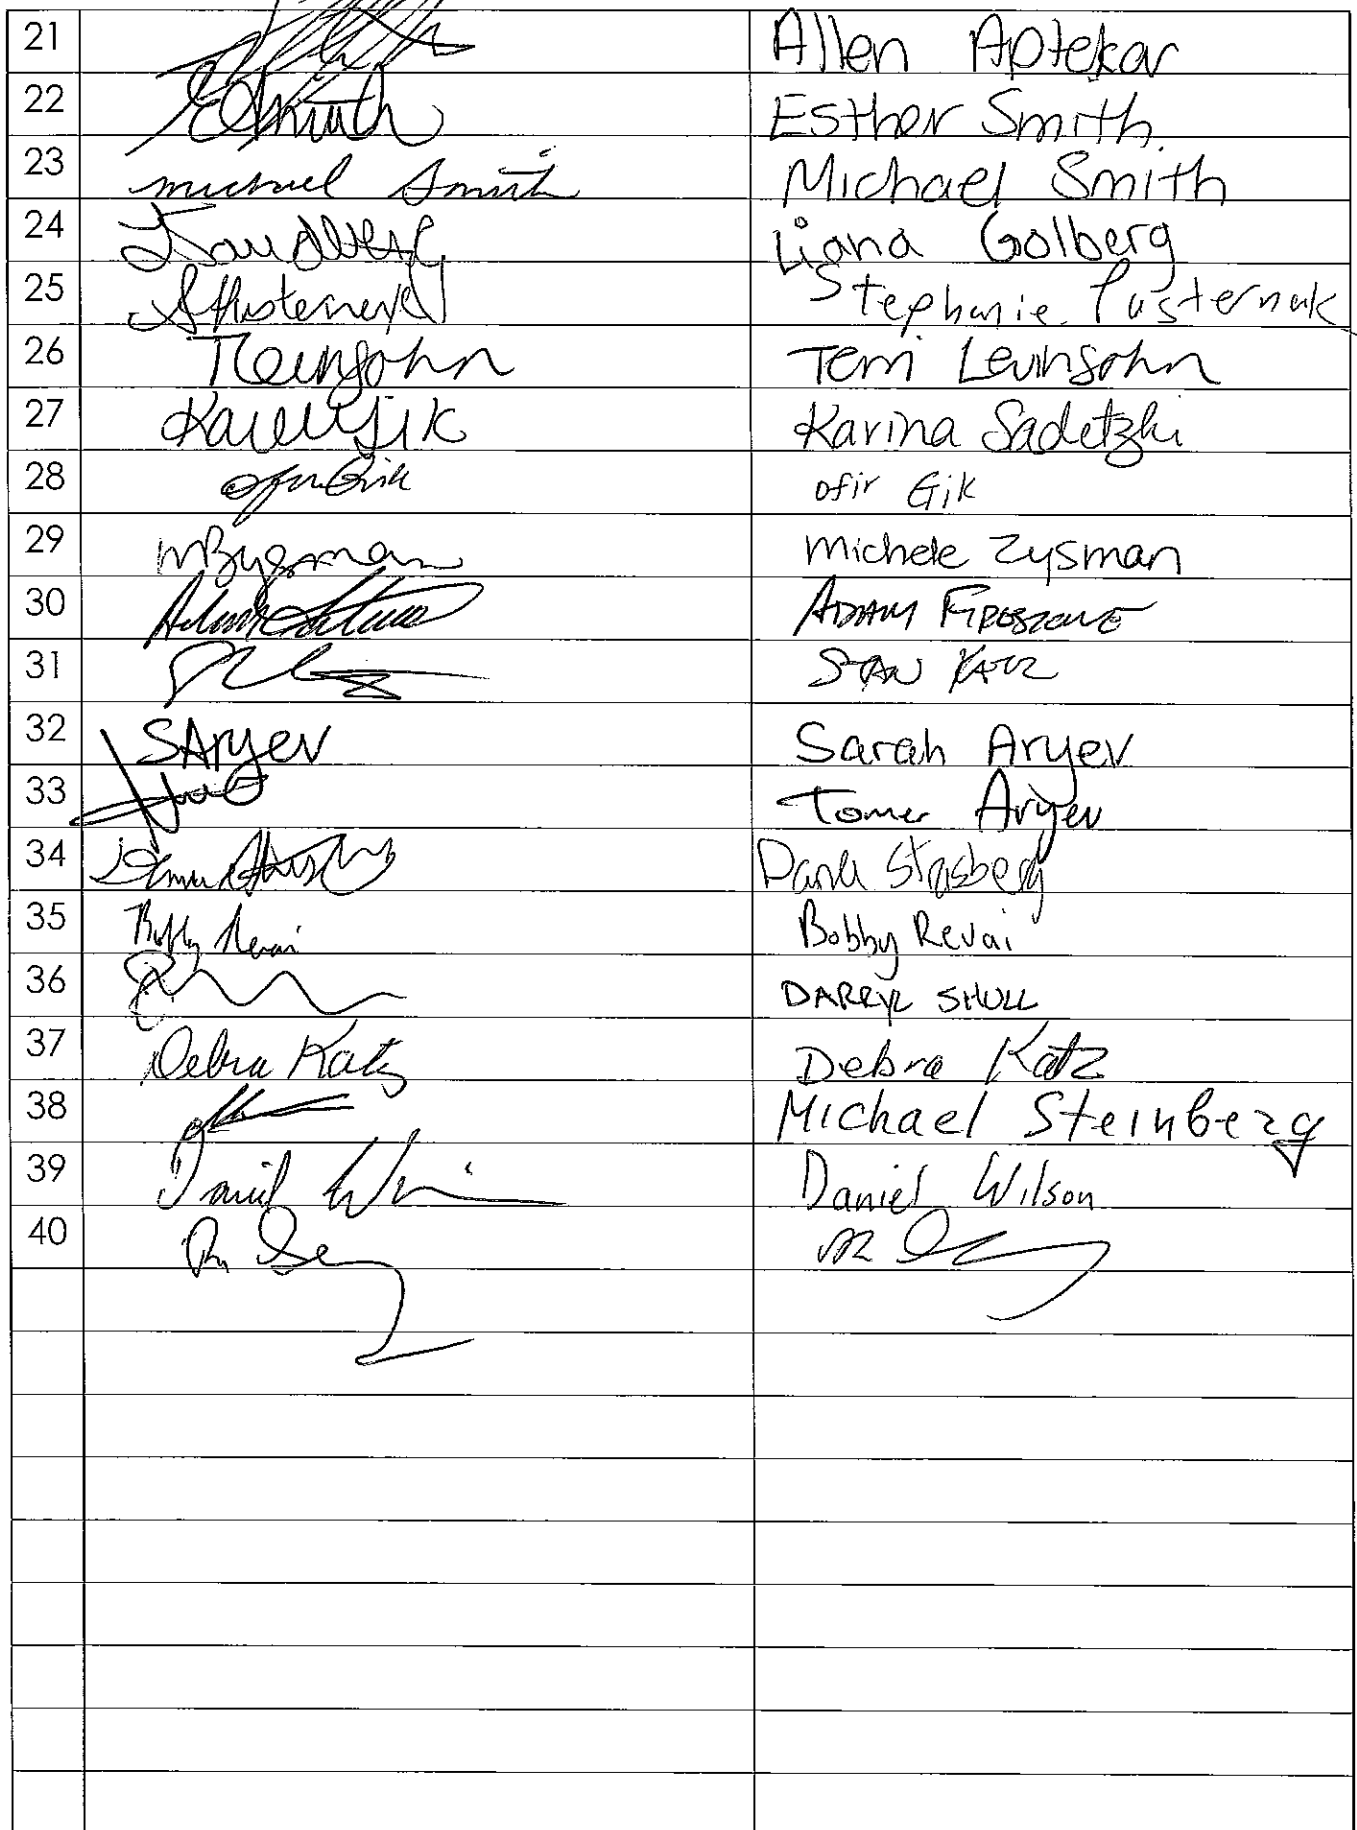 21 Allen Aptekar
22 ESmith Esther Smith
23 michael Smith Michael Smith
24 Liana Golberg
25 SPasternak Stephanie Pasternak
26 TLevinsohn Terri Levinsohn
27 Karina Sadetzki
28 ofir Gik ofir Gik
29 Michele Zysman
30 Adam
31 STAN KATZ
32 SAryev Sarah Aryev
33 Tomer Aryev
34 Dana Strasberg
35 Bobby Revai Bobby Revai
36 DARRYL SHULL
37 Debra Katz Debra Katz
38 Michael Steinberg
39 Daniel Wilson
40